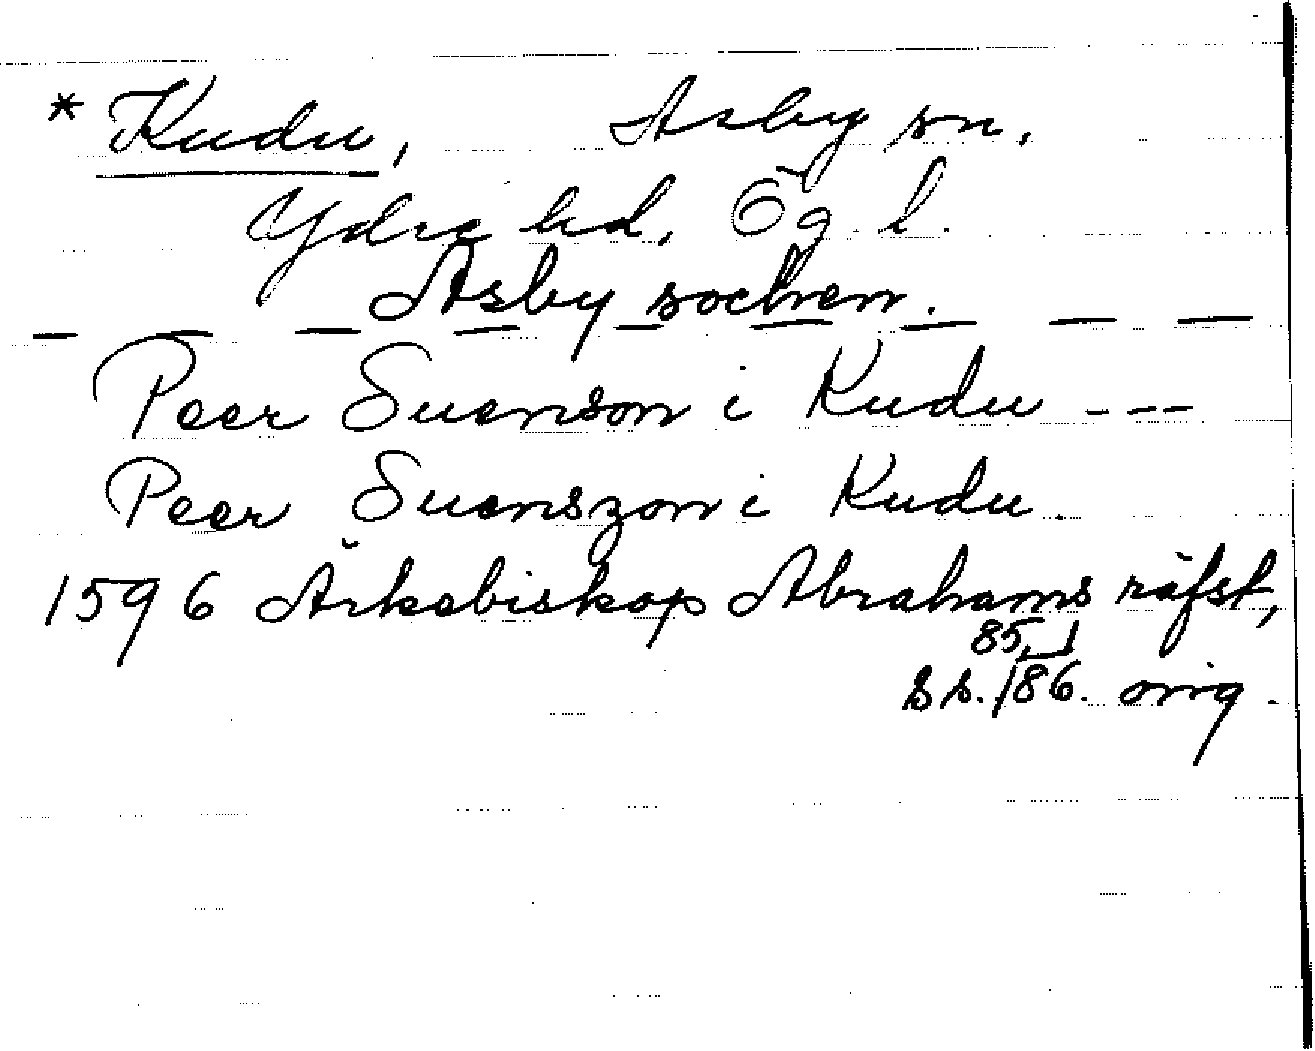 * Kudu, Asby sn.
Ydre hd. Ög. l.
Asby sochen.
Peer Suenson i Kudu ---
Peer Suenszon i Kudu
1596 Ärkebiskop Abrahams räfst,
85,
ss. 186. orig.